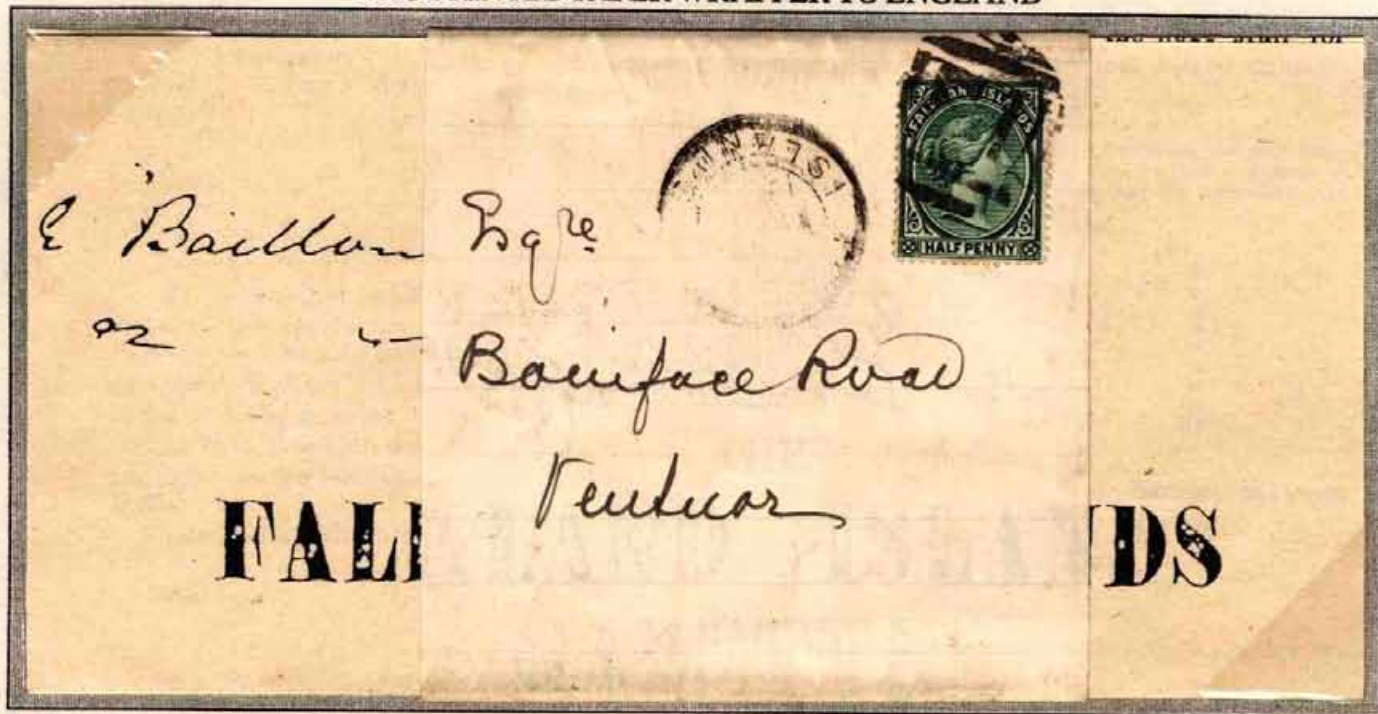 WRAPPER TO ENGLAND
FALKLAND ISLANDS
HALFPENNY
ISLAND
E Baillon Esqre
Boniface Road
Ventnor
FAL
NDS